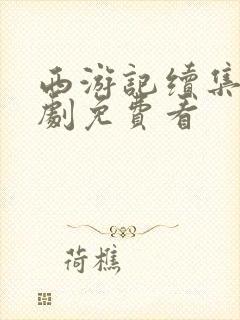 西游記续集
劇免費看
荷樵